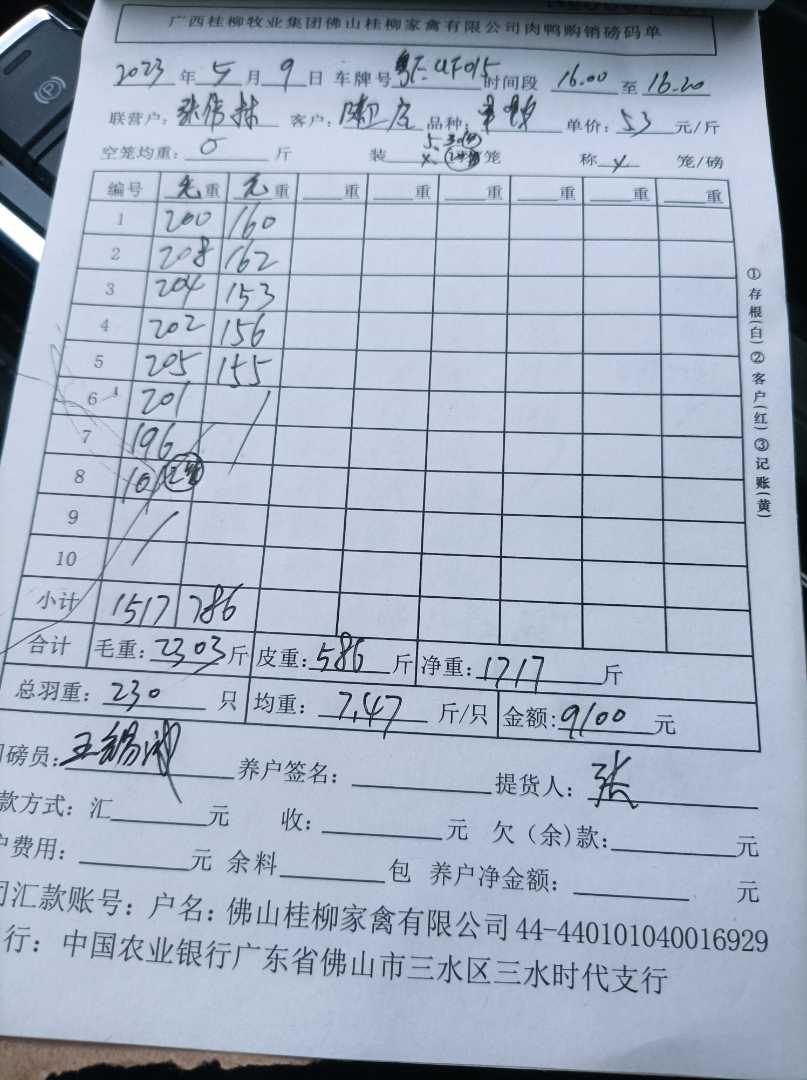 广西桂柳牧业集团佛山桂柳家禽有限公司肉鸭购销磅码单
2023 年 5 月 9 日 车牌号 时间段 16.00 至 16.20
联营户: 客户: 品种: 单价: 5.3 元/斤
空笼均重: 0 斤 装 笼 称 4 笼/磅
编号 毛重 毛重 重 重 重 重 重 重
1 200 160
2 208 162
3 204 153
4 202 156
5 205 155
6 201
7 196
8 101
9
10
小计 1517 786
合计 毛重: 2303 斤 皮重: 586 斤 净重: 1717 斤
总羽重: 230 只 均重: 7.47 斤/只 金额: 9100 元
磅员: 养户签名: 提货人: 张
款方式: 汇 元 收: 元 欠(余)款: 元
户费用: 元 余料 包 养户净金额: 元
司汇款账号: 户名: 佛山桂柳家禽有限公司 44-440101040016929
行: 中国农业银行广东省佛山市三水区三水时代支行
①存根(白)②客户(红)③记账(黄)